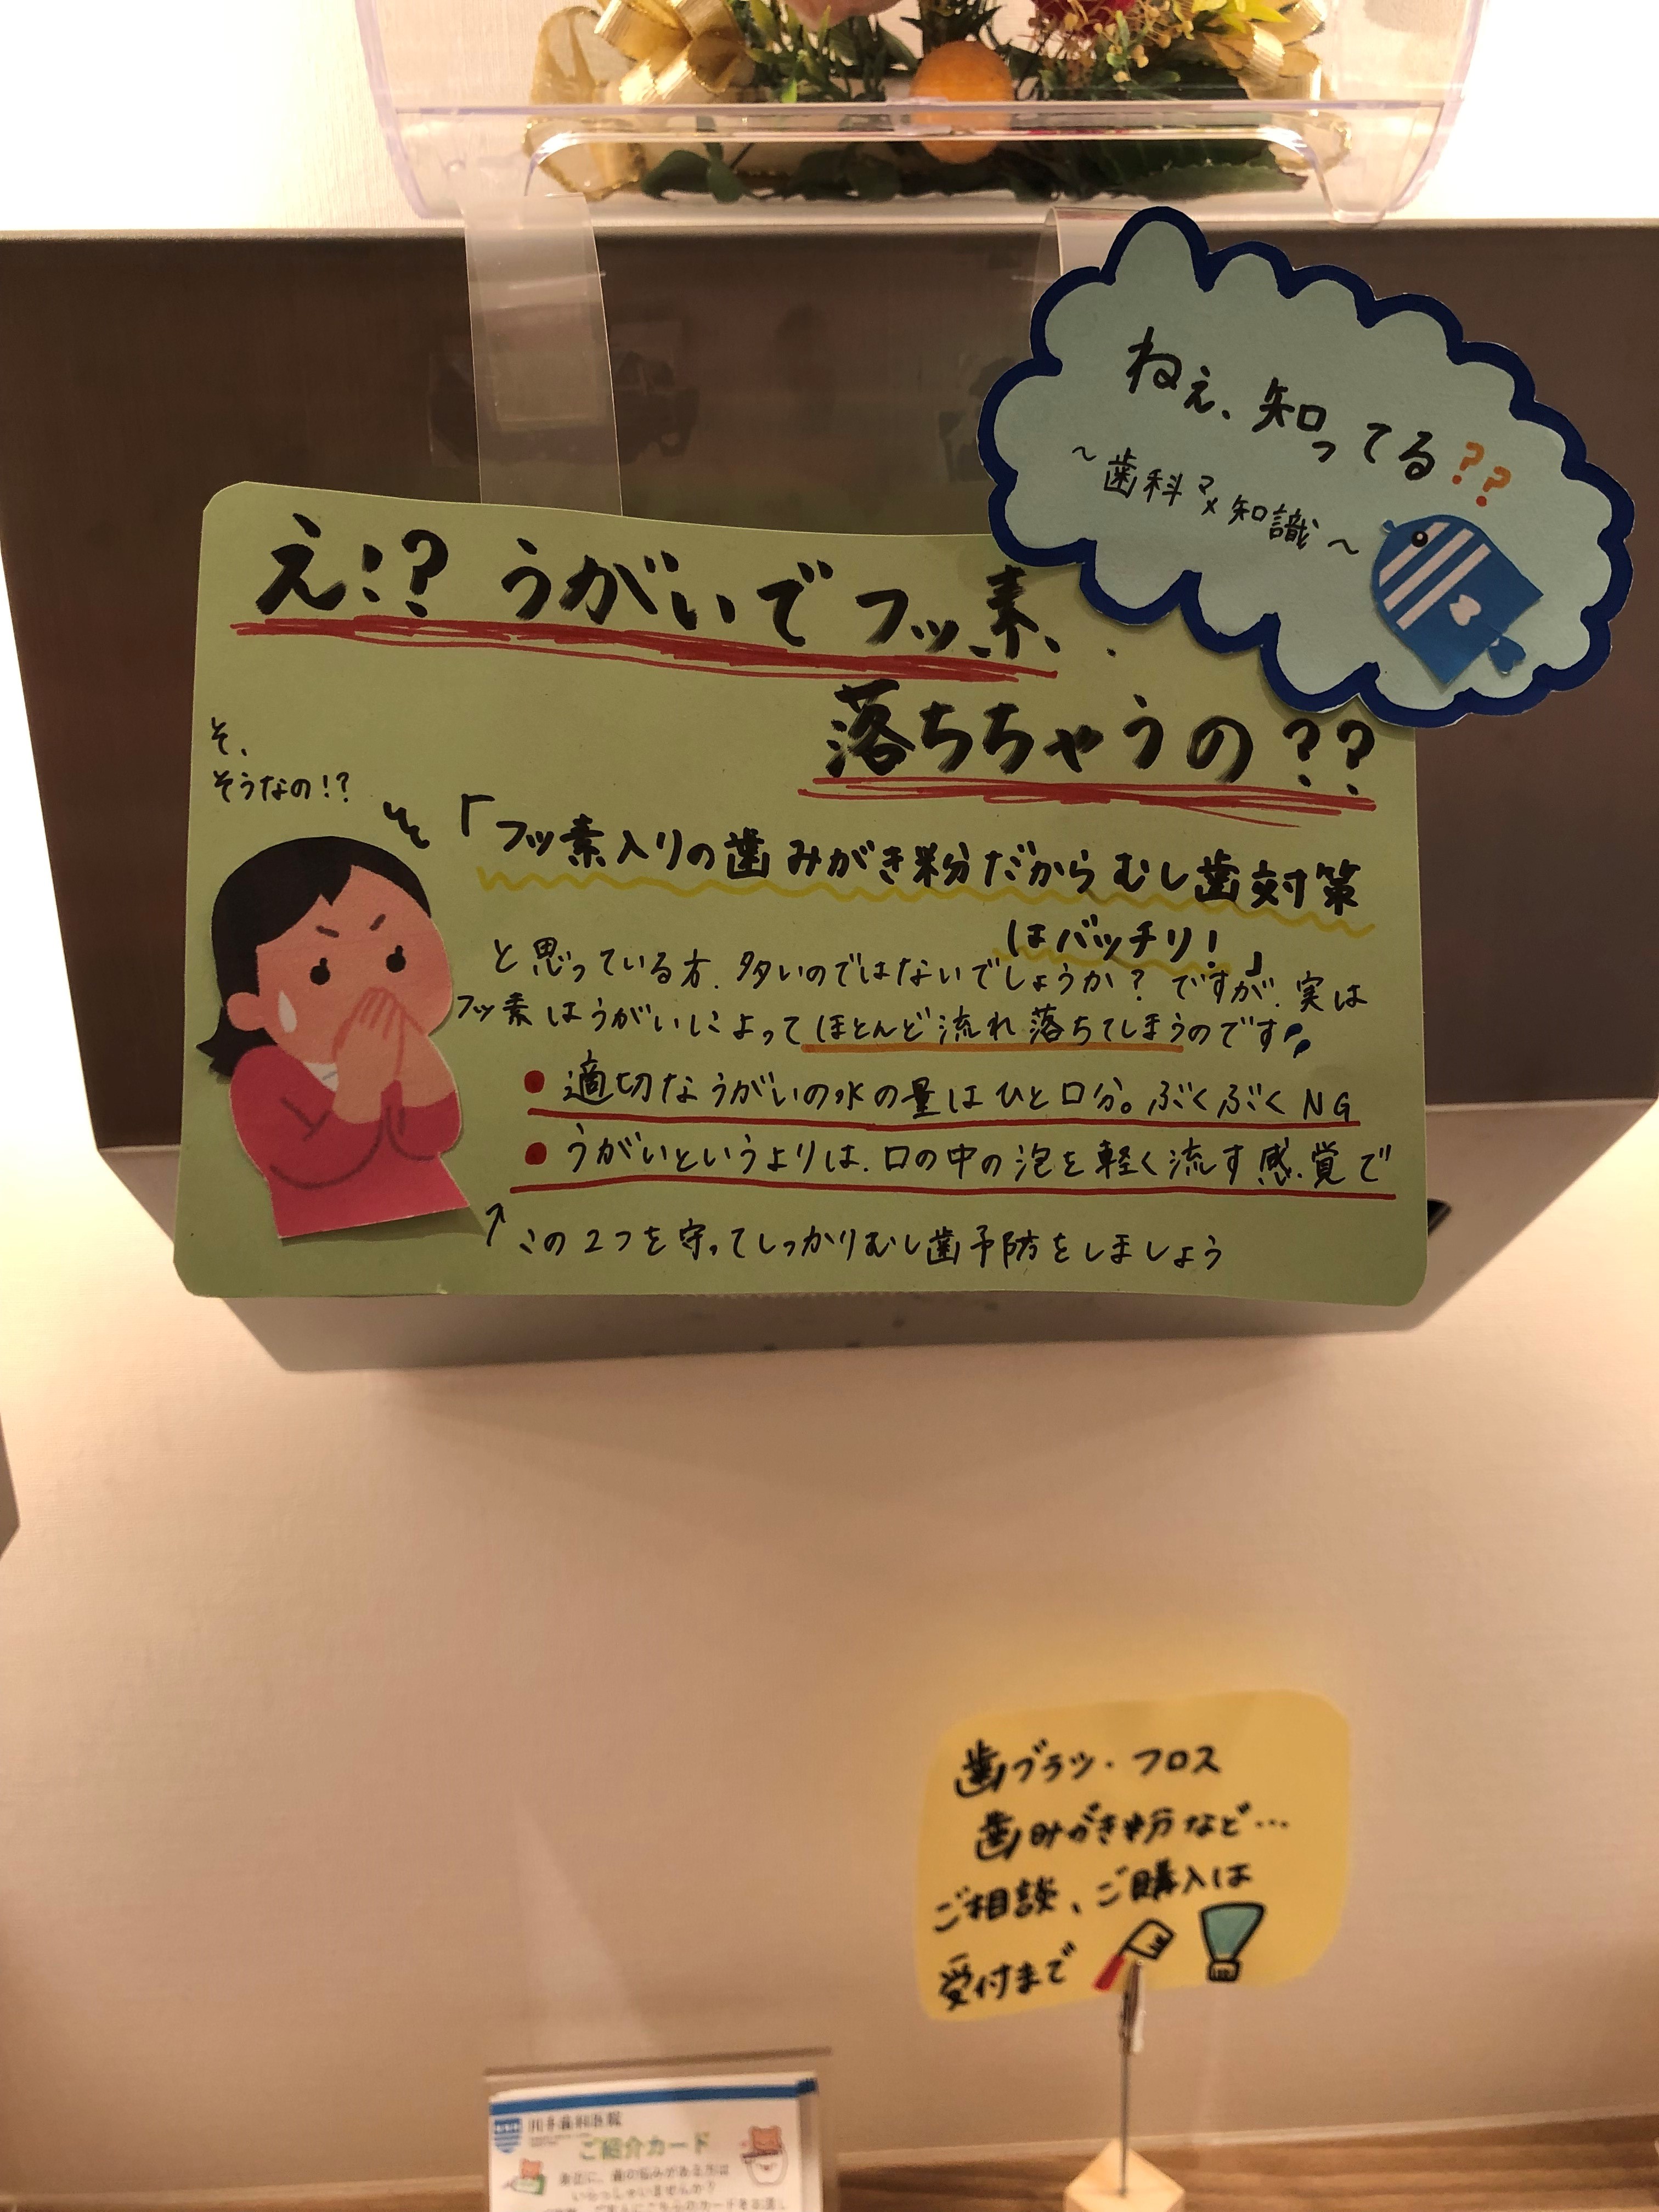 ねぇ、知ってる??
～歯科マメ知識～
え!? うがいでフッ素、
落ちちゃうの??
そ、
そうなの!?
「フッ素入りの歯みがき粉だからむし歯対策
はバッチリ!」
と思っている方、多いのではないでしょうか?ですが、実は
フッ素はうがいによってほとんど流れ落ちてしまうのです
●適切なうがいの水の量はひと口分。ぶくぶくNG
●うがいというよりは、口の中の泡を軽く流す感覚で
↑この2つを守ってしっかりむし歯予防をしましょう
歯ブラシ・フロス
歯みがき粉など…
ご相談、ご購入は
受付まで
ご紹介カード
身近に、歯の悩みがある方は
いらっしゃいませんか?